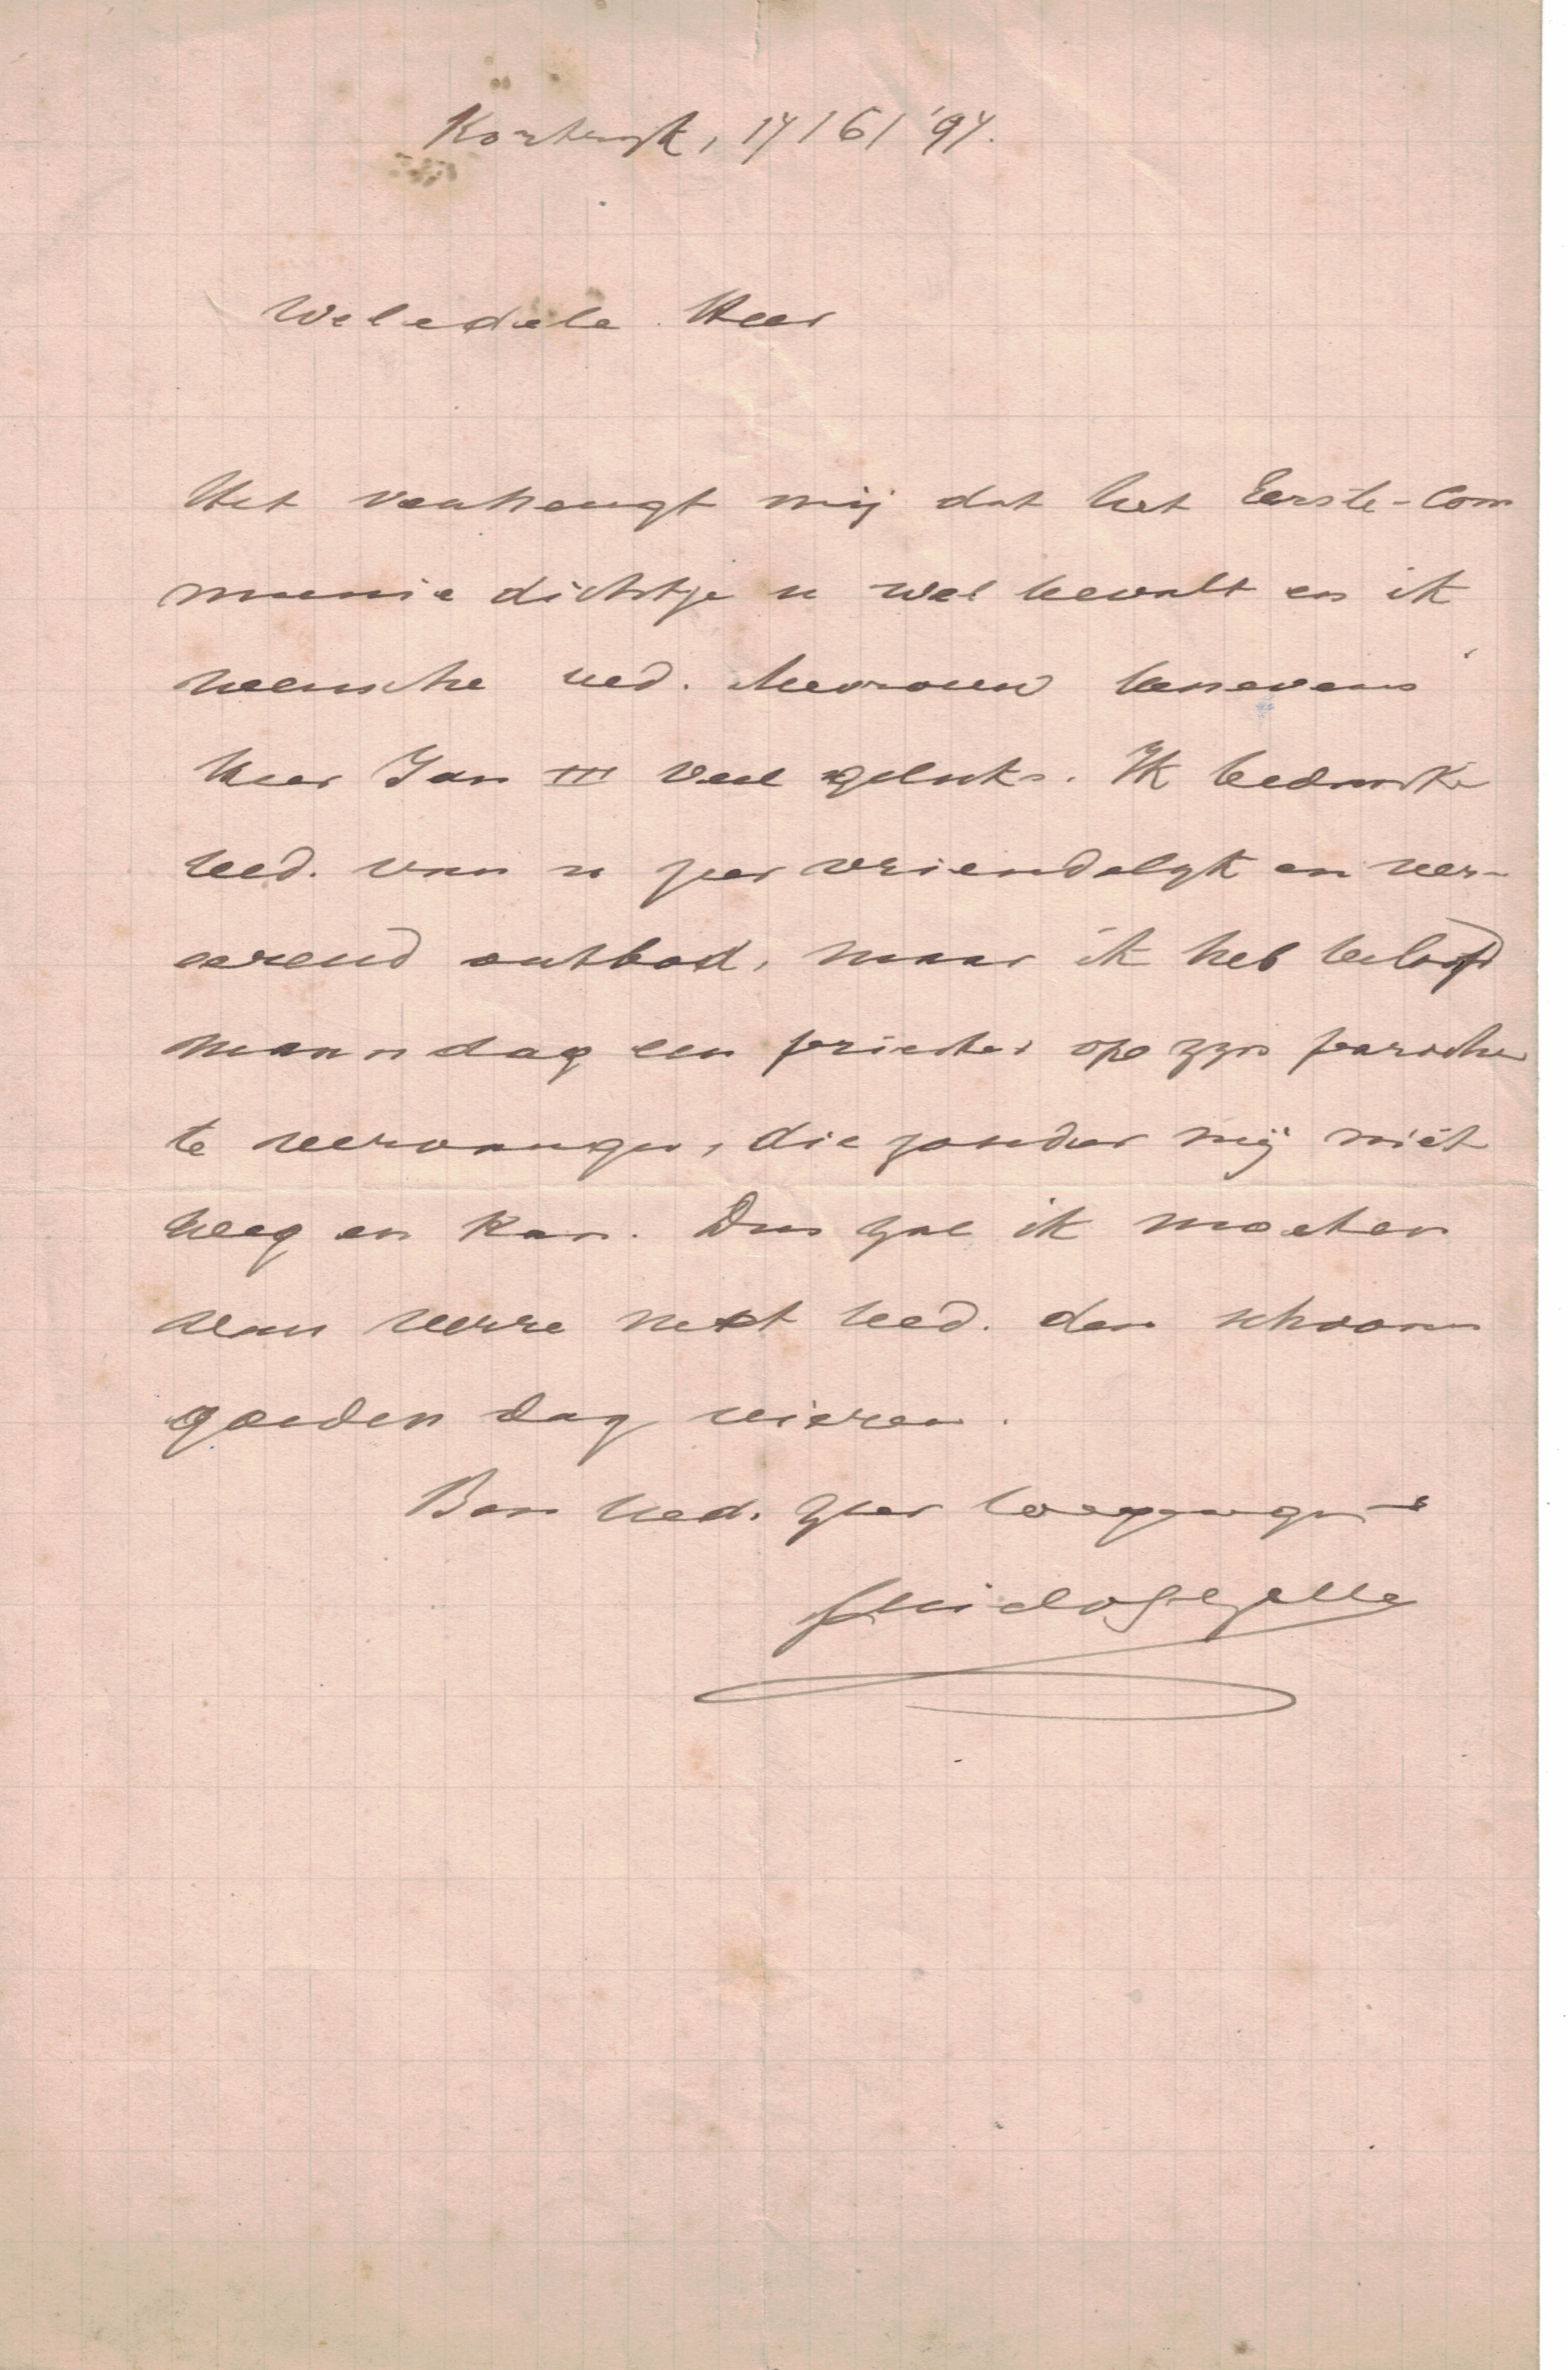 Kortryk, 17/6/'97.
Weledele Heer
Het verheugt mij dat het Eerste-Com
munie dichtje u wel bevalt en ik
wensche ued. Mevrouw benevens
heer Jan III veel geluks. Ik bedanke
ued. van u zeer vriendelyk en ver-
eerend ontbod, maar ik heb beloofd
maandag een priester op zyn parochie
te vervangen, die zonder mij niet
weg en kan. Dus zal ik moeten
van verre met ued. den schoonen
gouden dag vieren.
Ben ued. zeer toegenegen
Guido Gezelle